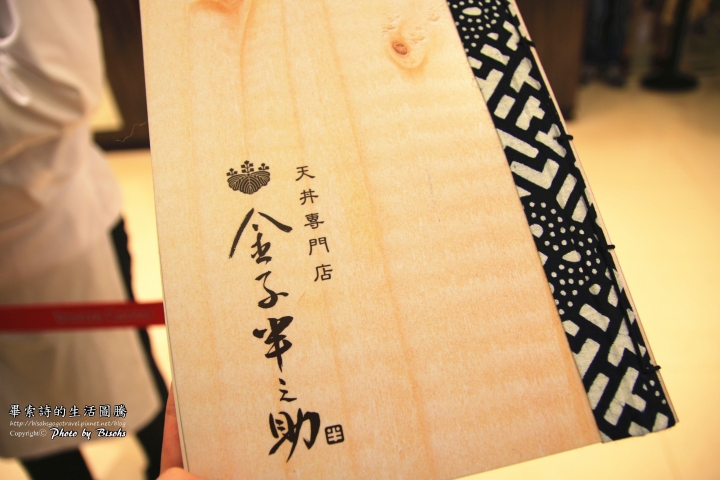 天丼専門店
金子半之助
半
畢索詩的生活圖騰
http://bisohsgogotravel.pixnet.net/blog
Copyright© Photo by Bisohs